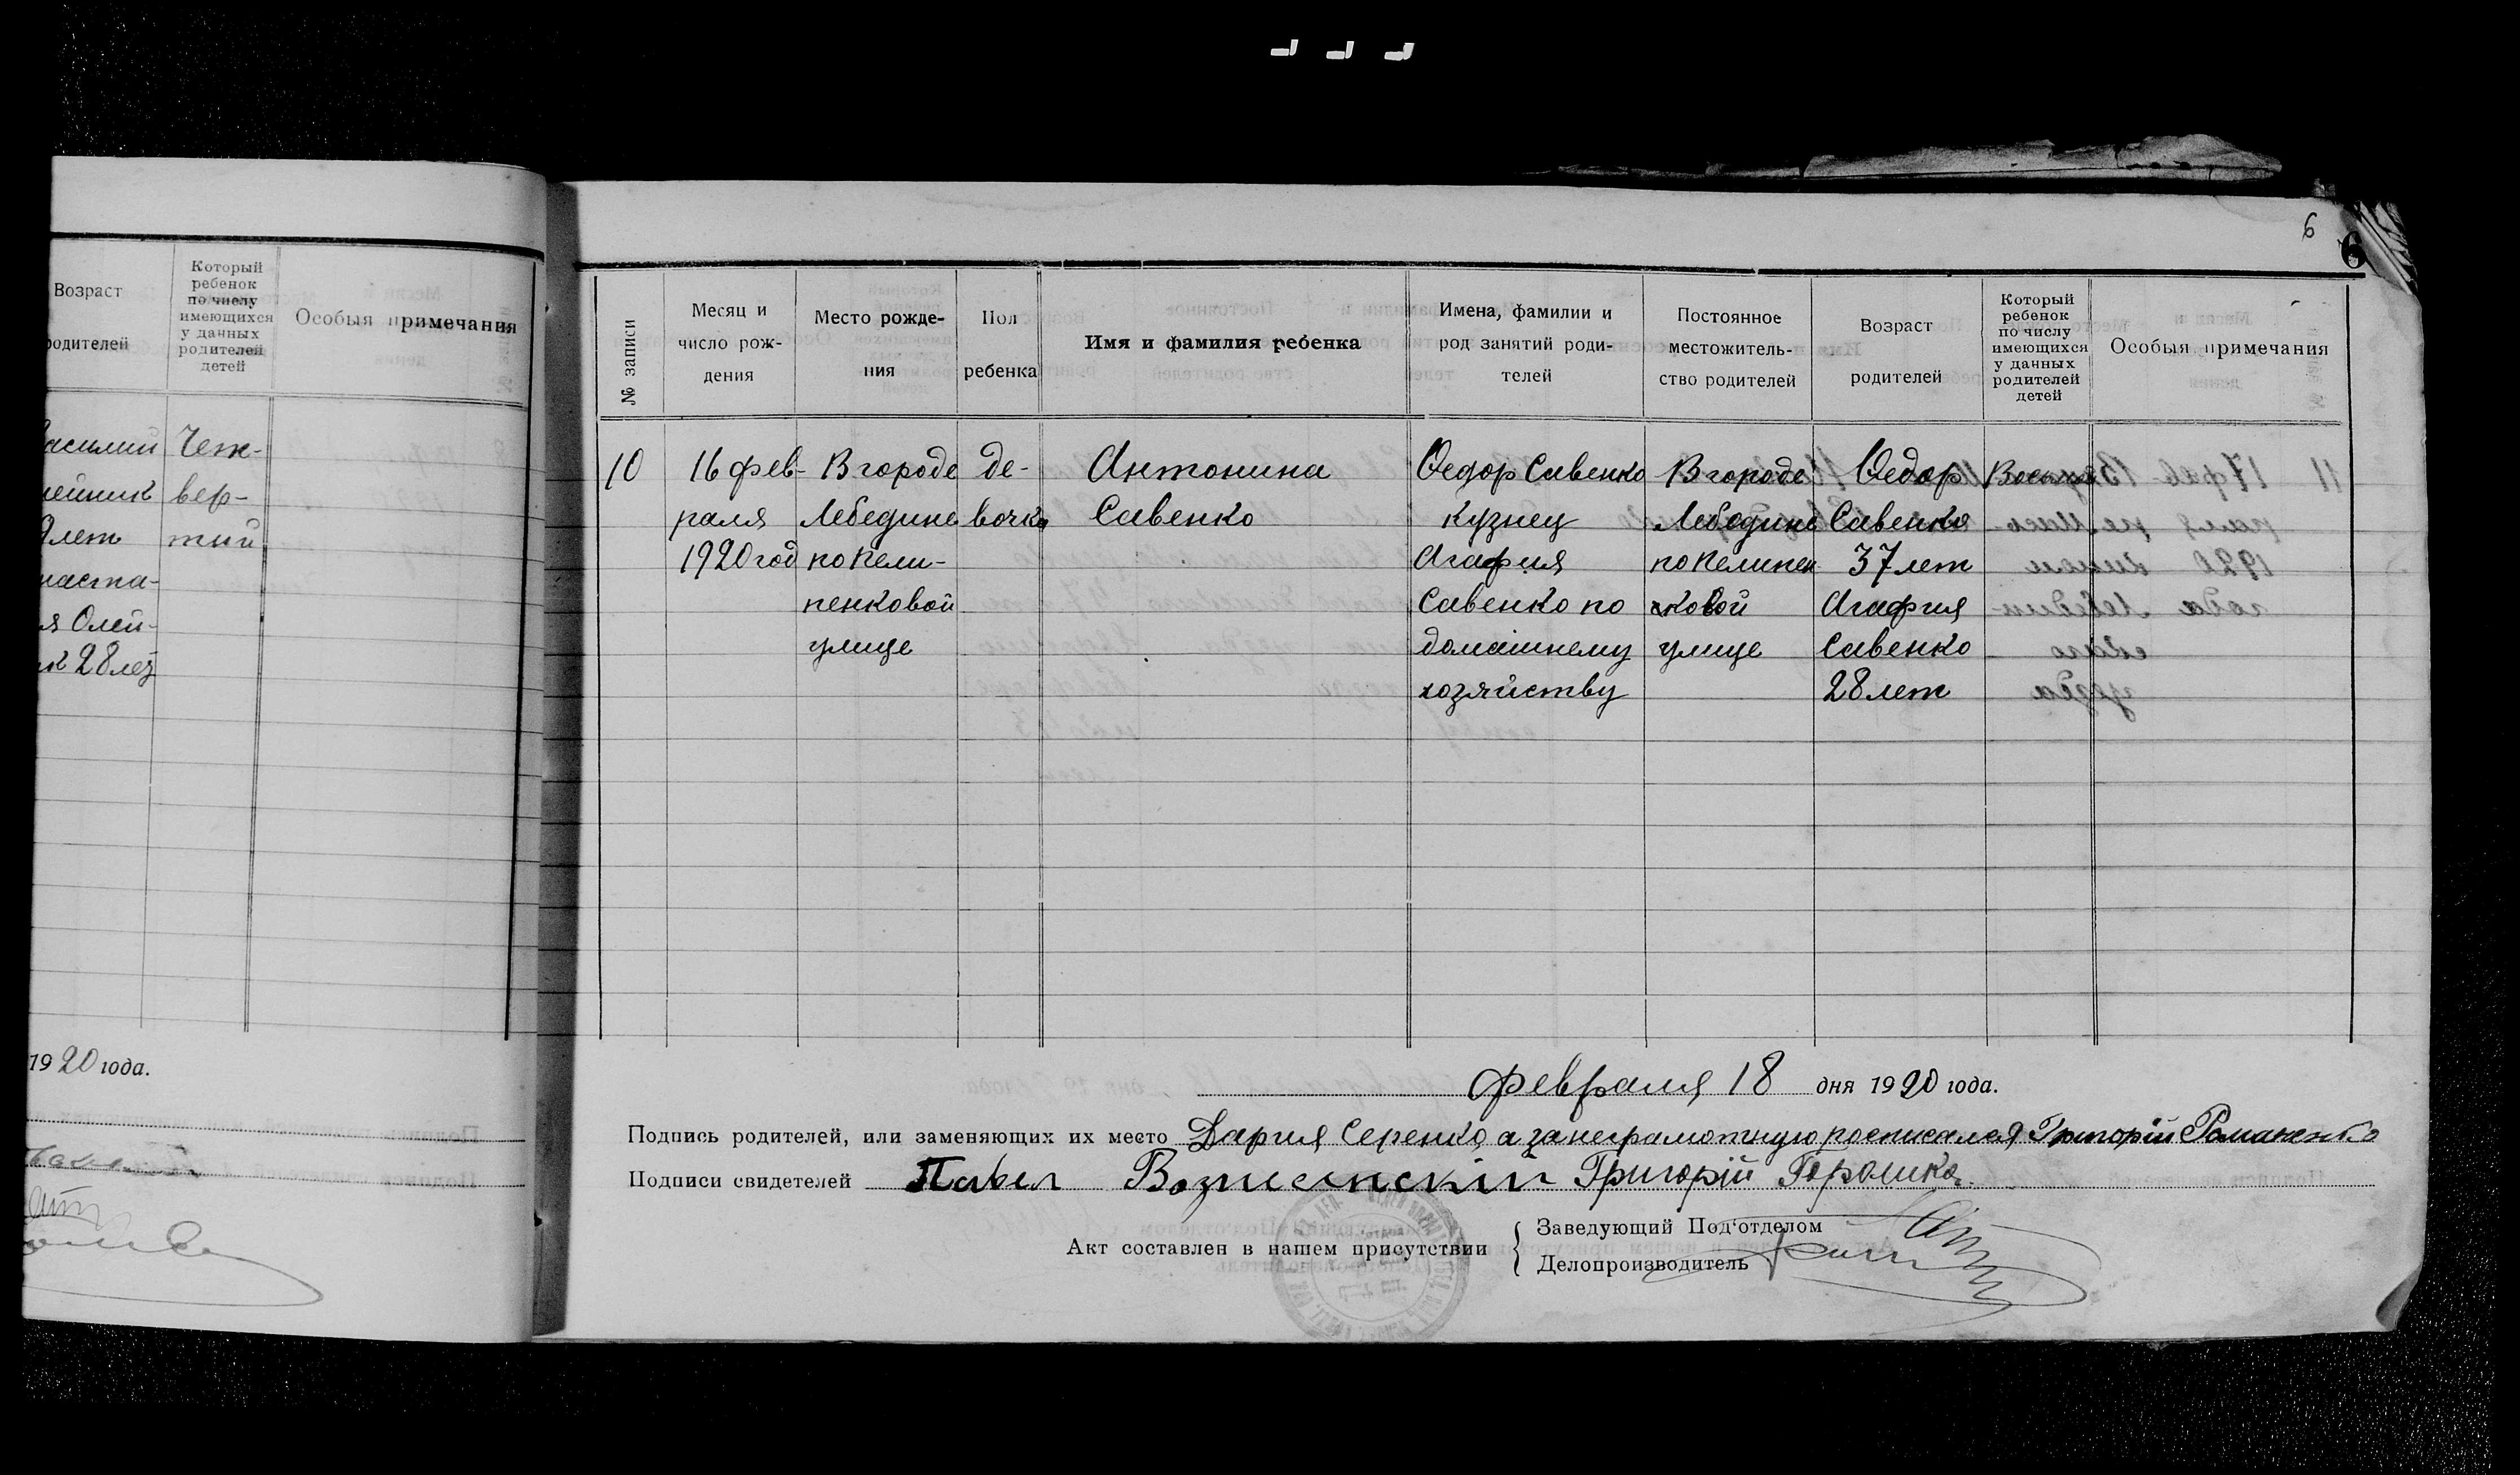 Возраст
родителей
Который
ребенок
по числу
имеющихся
у данных
родителей
детей
Особыя примечания
асилий
ейник
лет
наста-
я Олей-
к 28 лет
Чет-
вер-
тый
1920 года.
6
6
№ записи
Месяц и
число рож-
дения
Место рожде-
ния
Пол
ребенка
Имя и фамилия ребенка
Имена, фамилии и
род занятий роди-
телей
Постоянное
местожитель-
ство родителей
Возраст
родителей
Который
ребенок
по числу
имеющихся
у данных
родителей
детей
Особыя примечания
10
16 фев-
раля
1920 год
В городе
Лебедине
по Пели-
пенковой
улице
де-
вочка
Антонина
Савенко
Федор Савенко
кузнец
Агафия
Савенко по
домашнему
хозяйству
В городе
Лебедине
по Пелипен
ковой
улице
Федор
Савенко
37 лет
Агафия
Савенко
28 лет
февраля 18 дня 1920 года.
Подпись родителей, или заменяющих их место Дария Серенко, а за неграмотную росписался Григорій Романенко
Подписи свидетелей Павел Вознесенскій Григорій
Акт составлен в нашем присутствии
Заведующий Под'отделом
Делопроизводитель